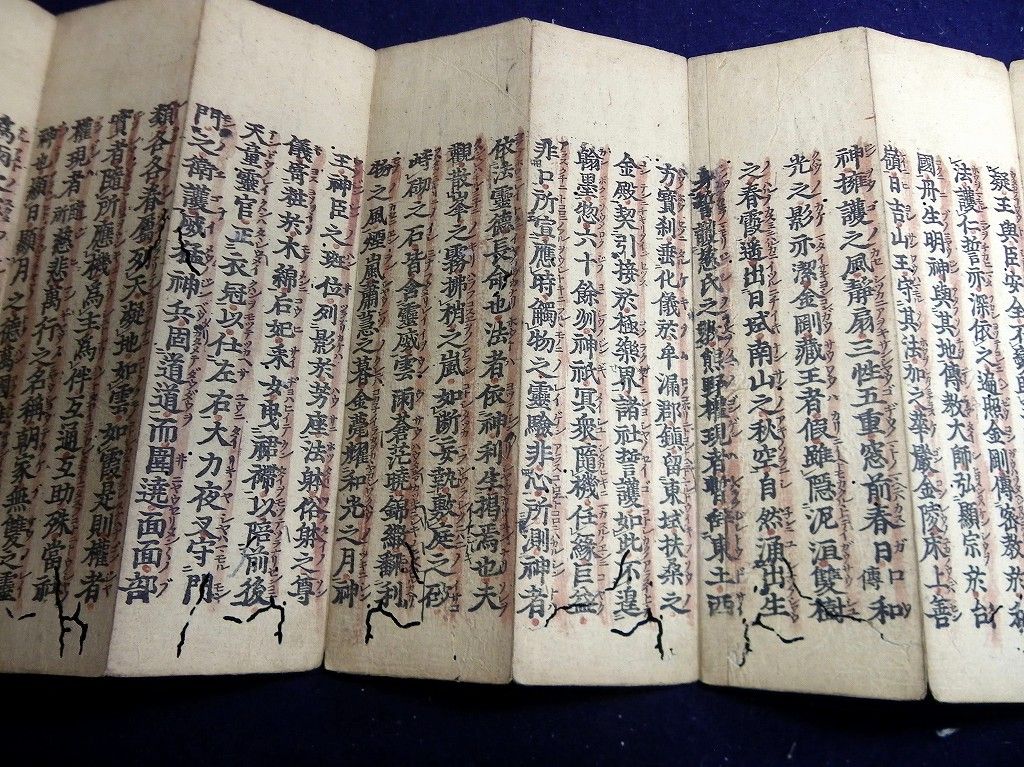 擬王與臣安全不
法護仁誓亦深依之遍照金剛傳密教於
國丹生明神與其地傳教大師弘顯宗於台
嶺日吉山王守其法加之華嚴金陵床上善
神擁護之風靜扇三性五重窓前春日傳和
光之影亦潔金剛藏王者假雖隱泥洹雙樹
之春霞遙出日域南山之秋空自然涌出生
身誓護慈氏之 熊野權現者暫 東土西
方寶刹垂化儀於牟漏郡鎮留東域扶桑之
金殿契引接於極樂界諸社誓護如此不遑
翰墨惣六十餘州神祇冥衆隨機任緣巨益
非口所宣應時觸物之靈驗非心所 則神者
依法靈德長命也法者依神利生揭焉也夫
觀散峯之霧拂梢之嵐如斷妄執敷庭之砂
峙砌之石皆含靈威雲雨蒼茫曉錦綴飜利
物之風煙嵐肅 之暮金 耀和光之月神
王神臣之班位列影於芳座法躰俗躰之尊
儀 粧於木綿石妃采女曳裙襟以陪前後
天童靈官正衣冠以仕左右大力夜叉守門
門之衛護威猛神兵固道道而圍遶面面部
類各各眷屬列天凝地如雲如霞是則權者
實者隨所應機爲主爲伴互通互助殊當神
權現者所 慈悲萬行之名稱朝家無雙之靈
神也顯日顯月之德